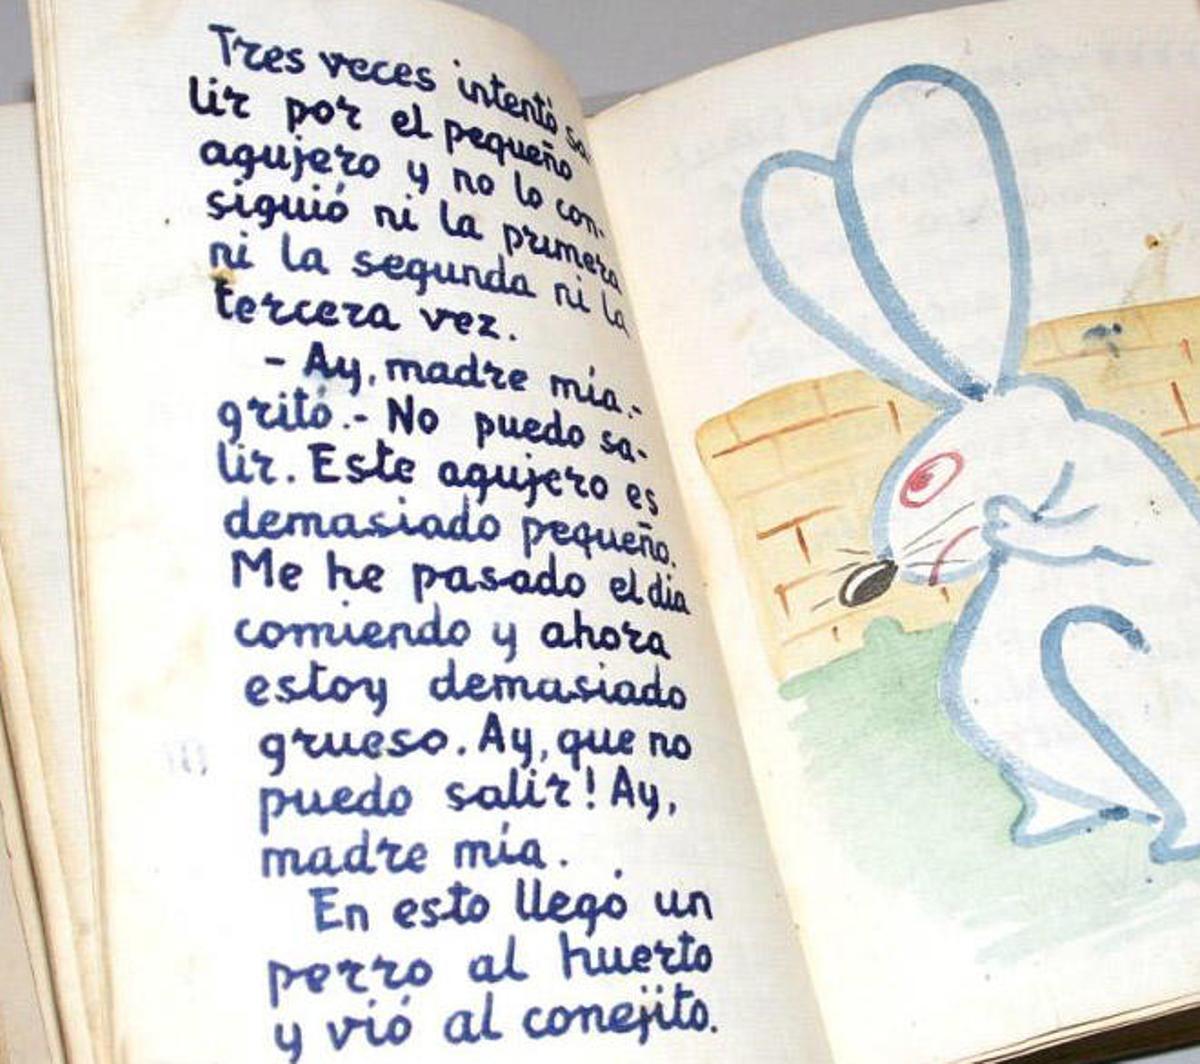 Tres veces intentó sa-
lir por el pequeño
agujero y no lo con-
siguió ni la primera
ni la segunda ni la
tercera vez.
- Ay, madre mía.-
gritó.- No puedo sa-
lir. Este agujero es
demasiado pequeño.
Me he pasado el día
comiendo y ahora
estoy demasiado
grueso. Ay, que no
puedo salir! Ay,
madre mía.
En esto llegó un
perro al huerto
y vió al conejito.